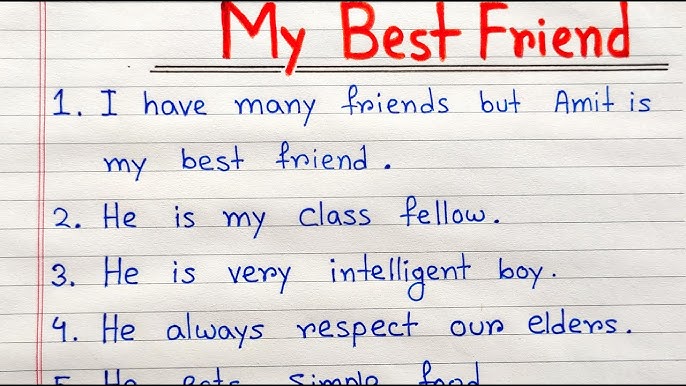 My Best Friend
1. I have many friends but Amit is
my best friend.
2. He is my class fellow.
3. He is very intelligent boy.
4. He always respect our elders.
5. He eats simple food